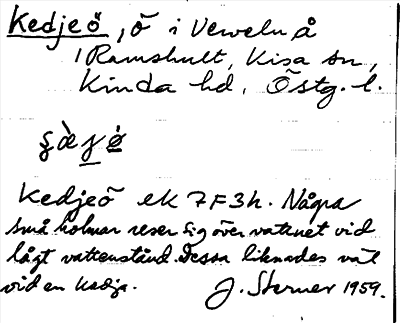 Kedjeö, ö i Verveln, å
Ramshult, Kisa sn,
Kinda hd, Östg. l.
Kedjeö ek 7F3h. Några
små holmar reser sig över vattnet vid
lågt vattenstånd. Dessa liknades väl
vid en kedja. J. Sterner 1959.